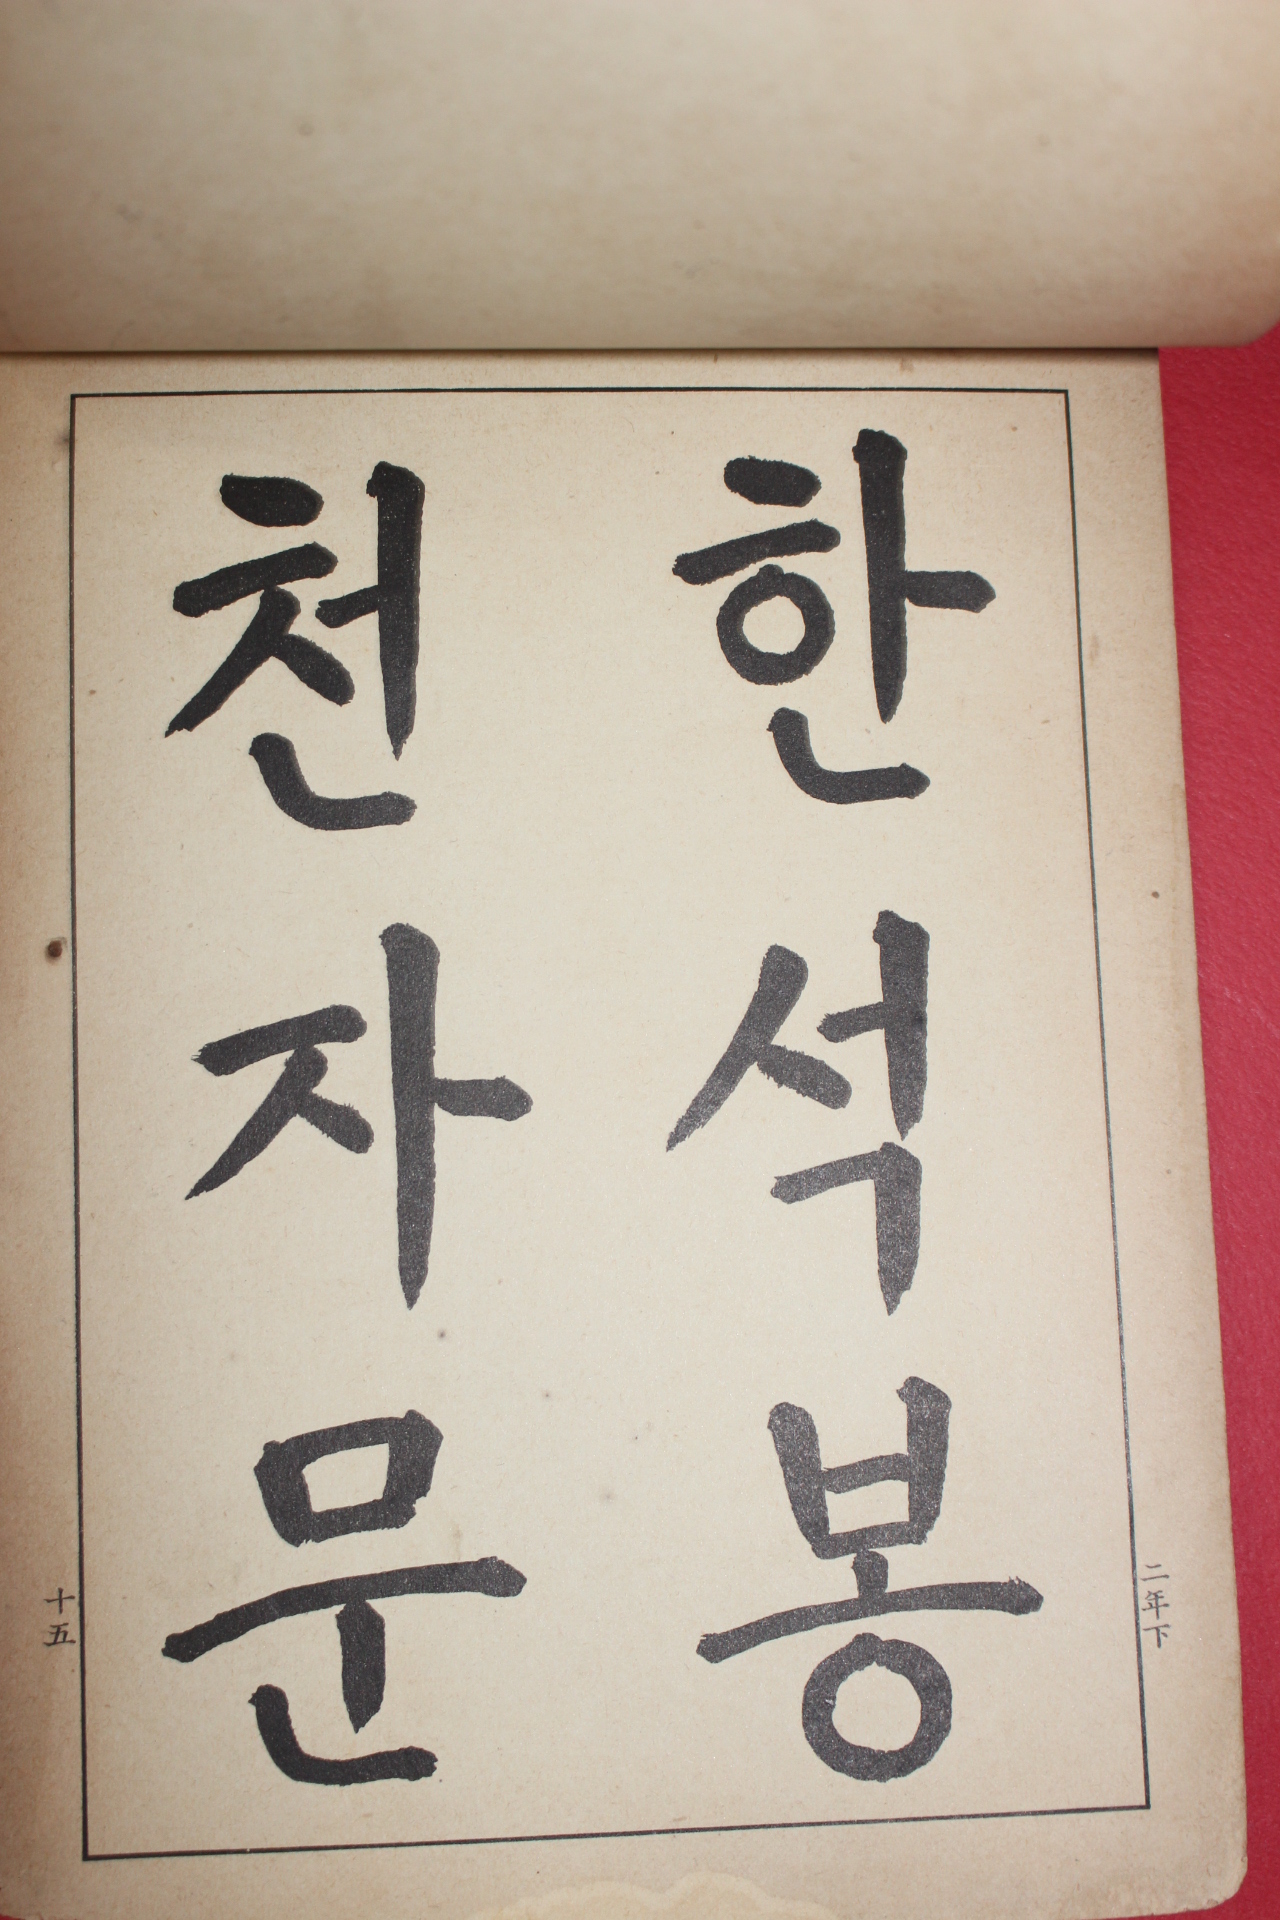 한석봉
천자문
二年下
十五